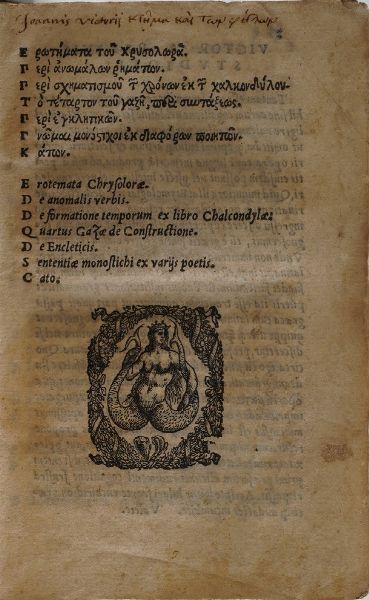 Joannis Victorii κτῆμα καὶ τῶν φίλων
Ερωτήματα τοῦ Χρυσολωρᾶ.
Περὶ ἀνωμάλων ῥημάτων.
Περὶ σχηματισμοῦ τῶν χρόνων ἐκ τῶν χαλκονδύλου.
Τὸ τέταρτον τοῦ γαζῆ, περὶ συντάξεως.
Περὶ ἐγκλητικῶν.
Γνῶμαι μονόστιχοι ἐκ διαφόρων ποιητῶν.
Κάτων.
Erotemata Chrysoloræ.
De anomalis verbis.
De formatione temporum ex libro Chalcondylæ.
Quartus Gazæ de Constructione.
De Encleticis.
Sententiæ monostichi ex varijs poetis.
Cato.